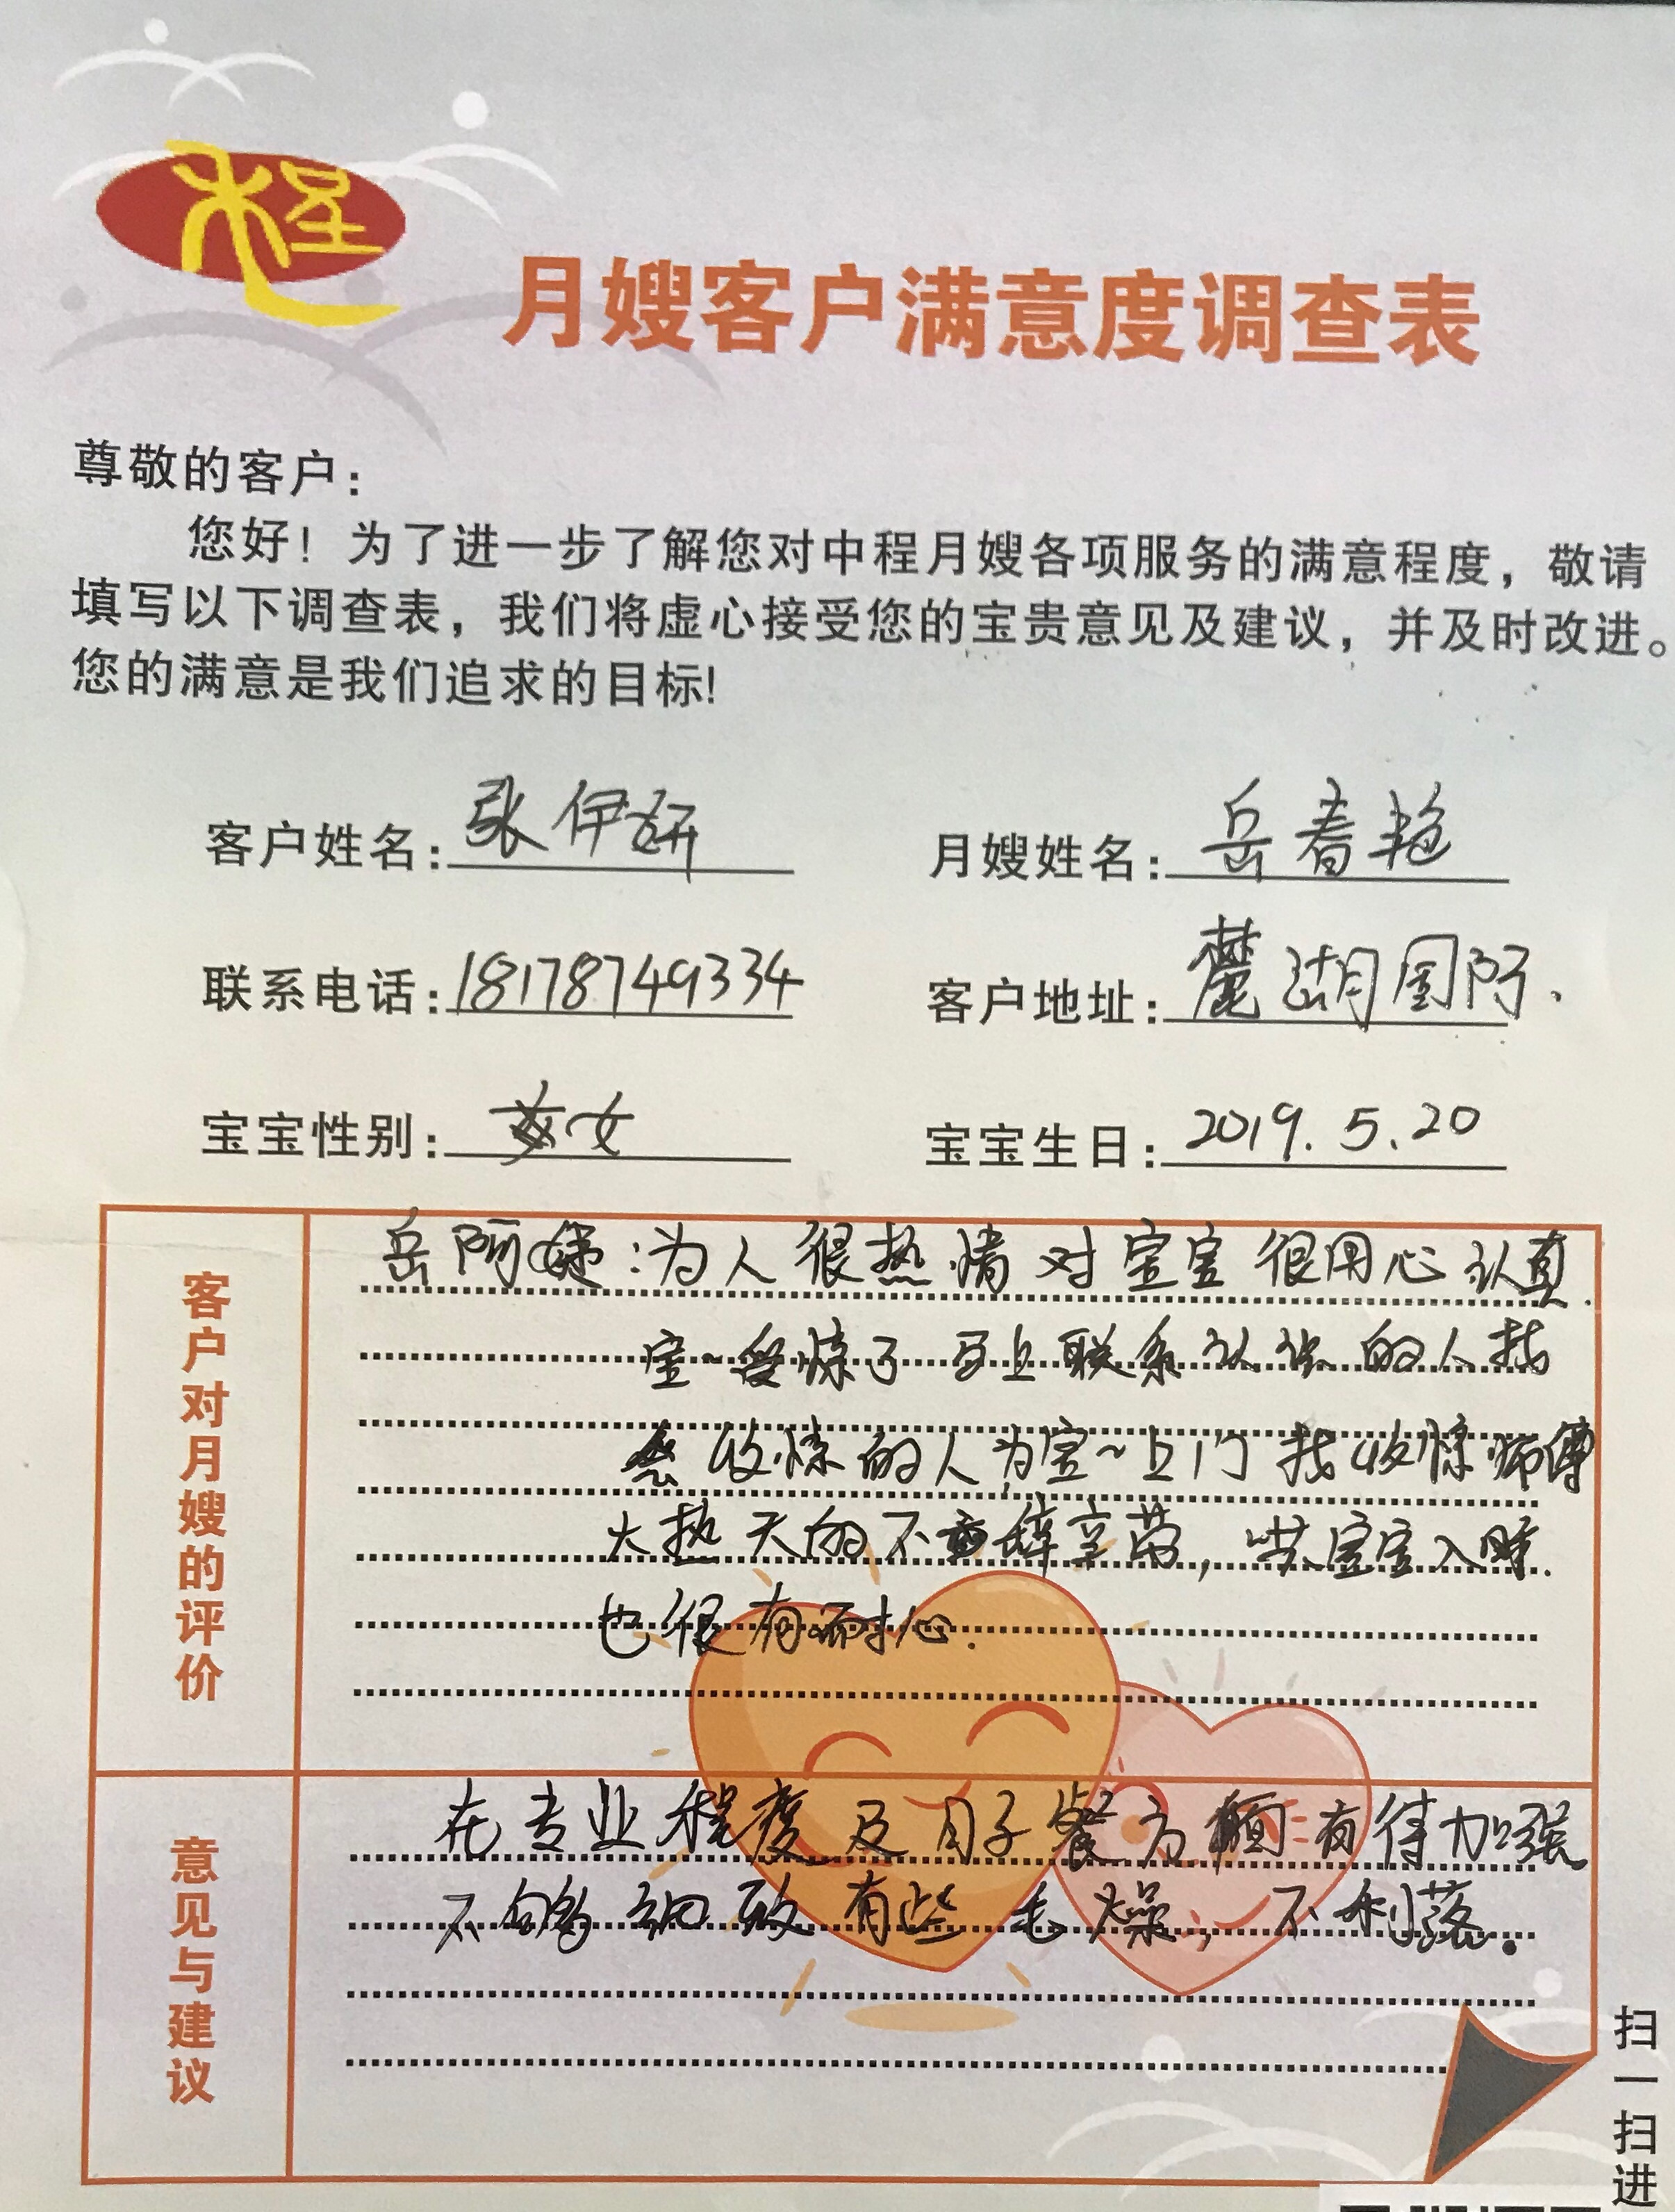 程
月嫂客户满意度调查表
尊敬的客户：
您好！为了进一步了解您对中程月嫂各项服务的满意程度，敬请
填写以下调查表，我们将虚心接受您的宝贵意见及建议，并及时改进。
您的满意是我们追求的目标！
客户姓名：张伊妍
月嫂姓名：岳春艳
联系电话：18178749334
客户地址：麓湖国际、
宝宝性别：女
宝宝生日：2019.5.20
客户对月嫂的评价
岳阿姨：为人很热情 对宝宝很用心认真.
宝~受惊了 马上联系认识的人找
会收惊的人为宝~上门 找收惊师傅
大热天的不辞辛劳，哄宝宝入睡.
也很有耐心.
意见与建议
在专业程度及月子餐方面有待加强
不够细致有些毛燥，不利落.
扫一扫进